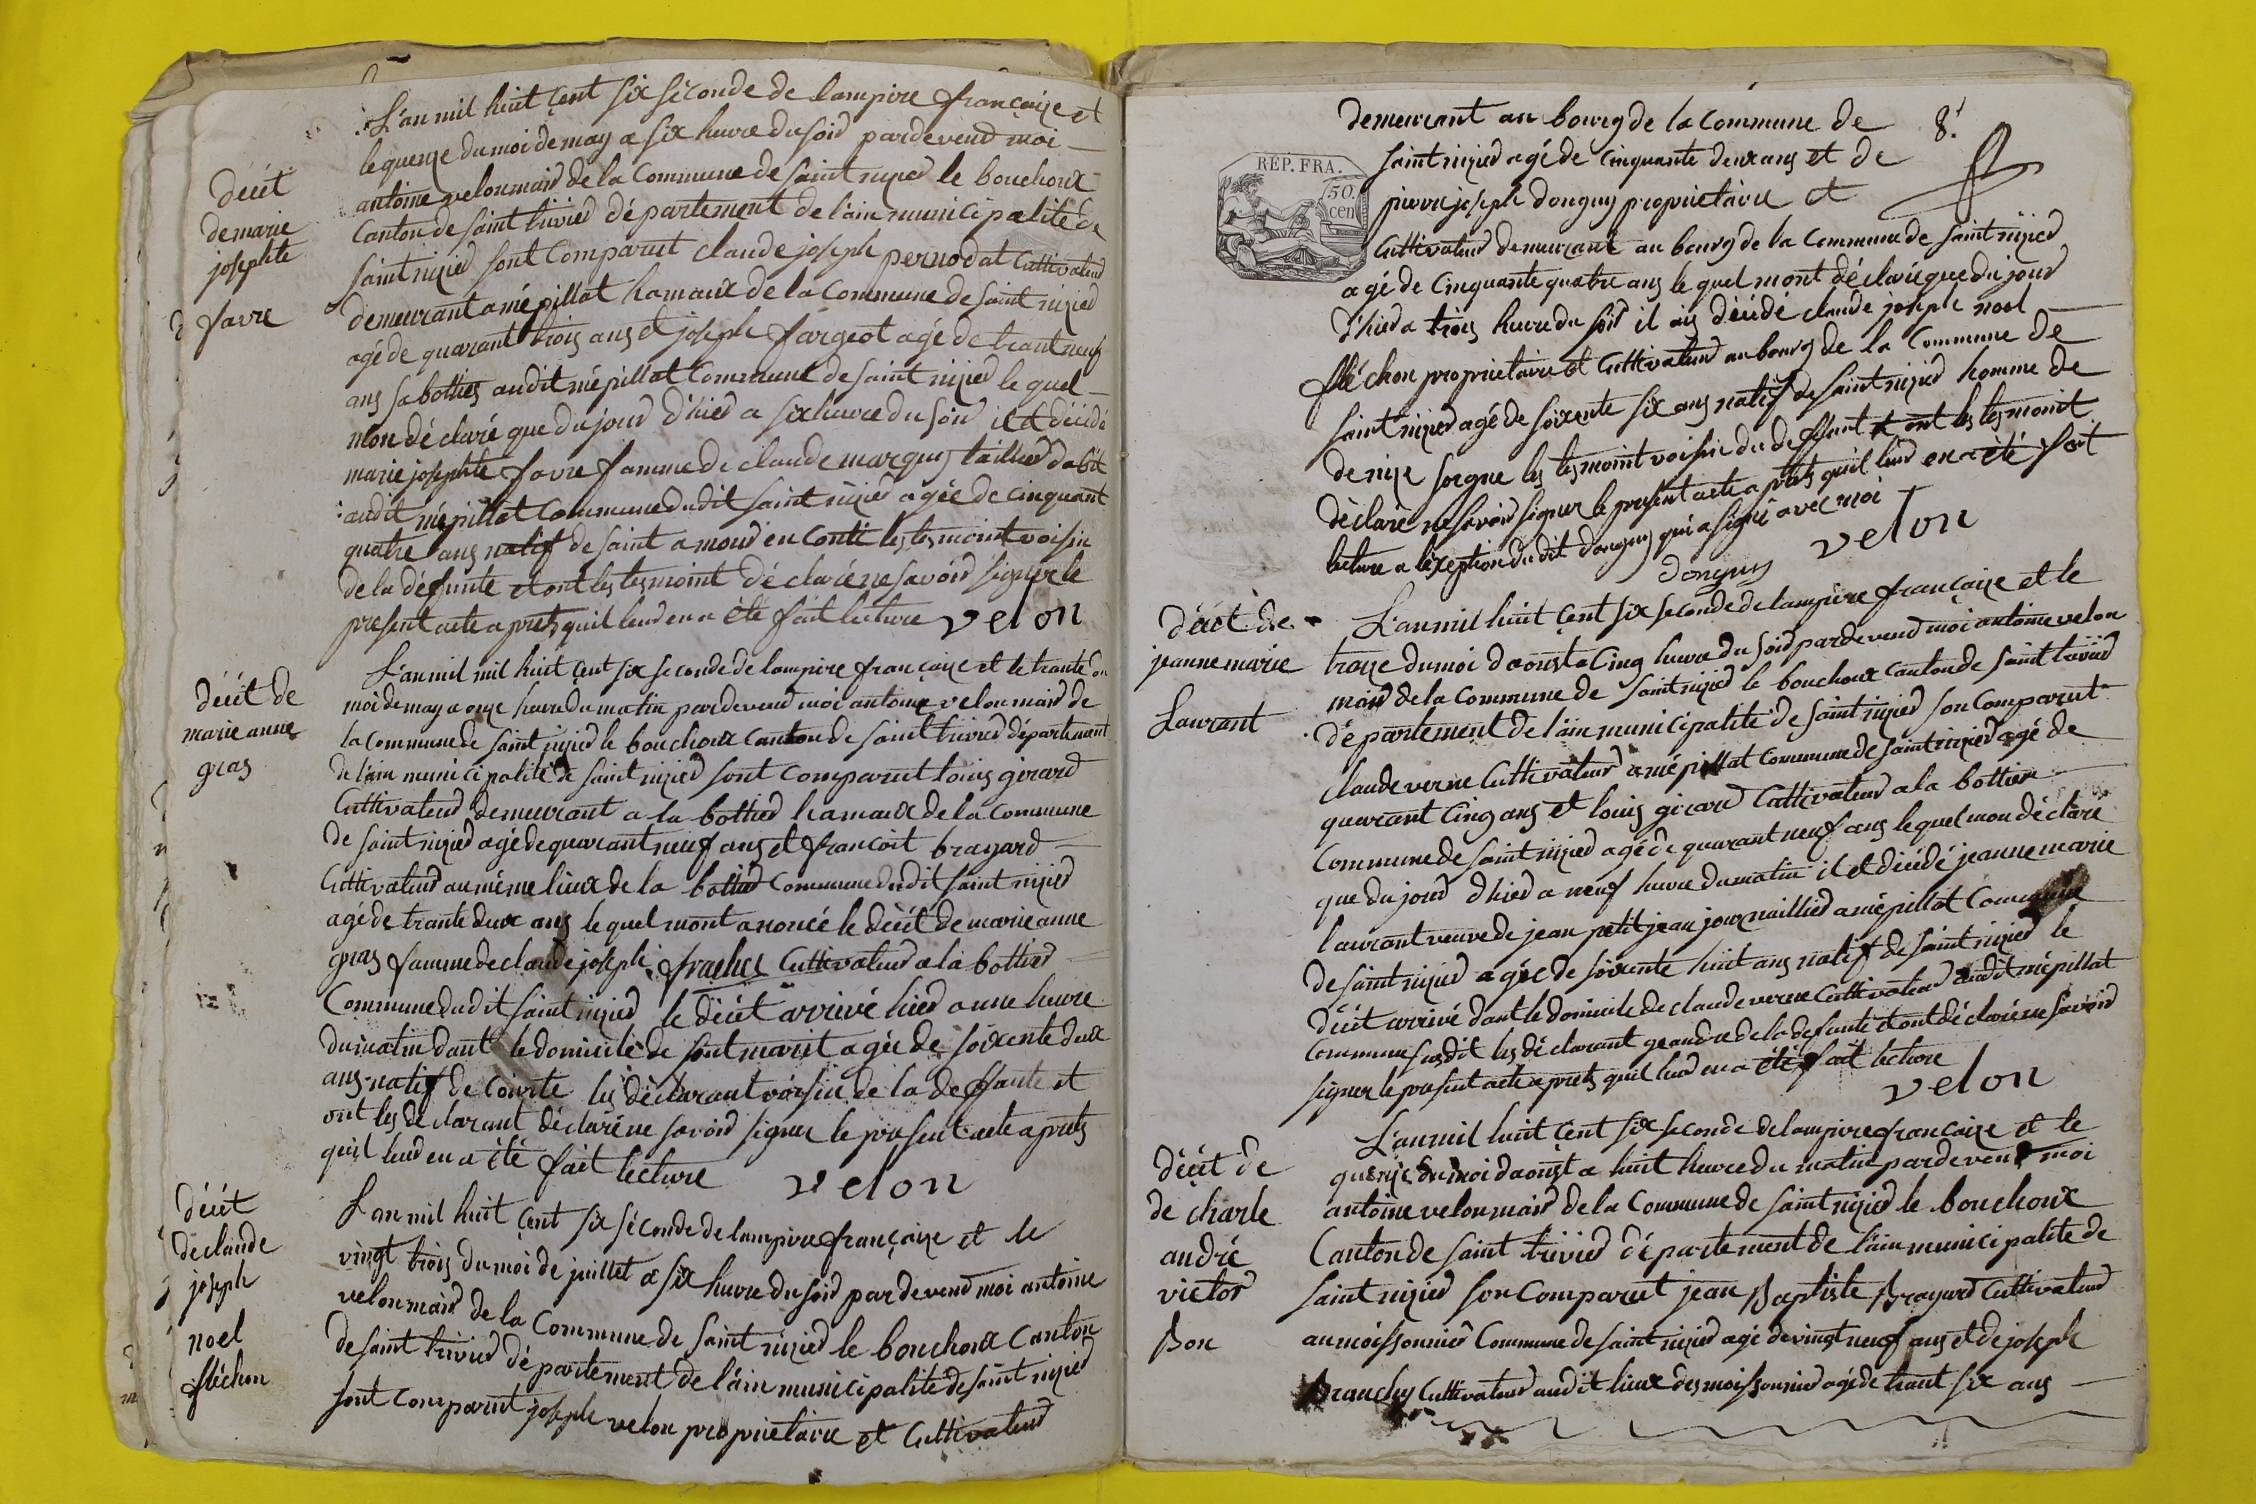 L'an mil huit çent six séconde de lampire françaize et
le quenze du moi de may a six heure du soir pardevend moi
antoine velon maire de la Commune de saint nizied le bouchoux
Canton de saint trivied département de l'ain municipalité de
saint nizied sont Comparut claude joseph pernodat Cultivateur
demeurant a mépillat hamaux de la Commune de saint nizied
agé de quarant trois ans et joseph fargeot agé de trant neuf
ans sabottier audit mépillat Commune de saint nizied le quel
mon déclaré que du jour d'hier a six heure du soir il et décédé
marie josephte favre famme de claude marguy taillier d'abit
audit mépillat Commune dudit saint nizied agée de cinquant
quatre ans natif de saint amour en Conté les tesmoint voisin
de la défunte et ont les tesmoint déclaré ne savoir signer le
present acte aprets quil leur en a été fait lecture velon
décét
de marie
josephte
favre
L'an mil mil huit çent six séconde de lampire françaize et le trante du
moi de may a onze heure du matin pardevend moi antoine velon maire de
la commune de saint nizied le bouchoux Canton de saint trivied département
de l'ain municipalité de saint nizied sont comparut louis girard
Cultivateur demeurant a la bottier hamaux de la Commune
de saint nizied agé de quarant neuf ans et francoit brayard
Cultivateur au même lieux de la bottier Commune dudit saint nizied
agé de trante deux ans le quel mont anoncé le décét de marie anne
gras famme de claude joseph frachet Cultivateur a la bottier
Commune dudit saint nizied le décét arrivé hier a une heure
du matin dant le domicile de sont marit agée de soixente deux
ans natif de les déclarant voisin de la deffunte et
ont les déclarant déclaré ne savoir signer le present acte aprets
quil leur en a été fait lecture velon
décét de
marie anne
gras
L'an mil huit çent six séconde de lampire françaize et le
vingt trois du moi de juillet a six heure du soir pardevend moi antoine
velon maire de la Commune de saint nizied le bouchoux Canton
de saint trivied département de l'ain municipalité de saint nizied
sont comparut joseph velon propriétaire et Cultivateur
décét
de claude
joseph
noel
fléchon
8.
REP. FRA.
50.
cen
demeurant au bourg de la Commune de
saint nizied agé de cinquante deux ans et de
pierre joseph donguy propriétaire et
Cultivateur demeurant au bourg de la Commune de saint nizied
agé de Cinquante quatre ans le quel mont déclaré que du jour
d'hier a trois heure du soir il ais décédé claude joseph noel
fléchon propriétaire et Cultivateur au bourg de la Commune de
saint nizied agé de soixente six ans natif de saint nizied homme de
denize sorgne les tesmoint voisin du deffunt et ont les tesmoint
déclaré ne savoir signer le present acte aprets quil leur en a été fait
lecture a lexeption dudit donguy qui a signé avec moi
donguy velon
décét de
jeanne marie
Laurant
L'an mil huit çent six seconde de lampire françaize et le
traize du moi d'aoust a Cinq heure du soir pardevend moi antoine velon
maire de la commune de saint nizied le bouchoux canton de saint trivied
département de l'ain municipalité de saint nizied son Comparut
claude verne Cultivateur a mépillat commune de saint nizied agé de
quarant Cinq ans et louis girard Cultivateur a la bottier
Commune de saint nizied agé de quarant neuf ans lequel mon déclaré
que du jour d'hier a neuf heure du matin il et décédé jeanne marie
laurant veuve de jean petitjean journaillier a mépillat Commune
de saint nizied agée de soixente huit ans natif de saint nizied le
décét arrivé dant le domicile de claude verne Cultivateur audit mépillat
Commune susdit les déclarant geandre de la defunte et ont déclaré ne savoir
signer le present acte aprets quil leur en a été fait lecture
velon
décét de
de charle
andré
victor
Bon
L'an mil huit çent six seconde de lampire françaize et le
quenze du moi d'aoust a huit heure du matin pardevend moi
antoine velon maire de la Commune de saint nizied le bouchoux
Canton de saint trivied département de l'ain municipalité de
saint nizied son Comparut jean Baptiste Brayard Cultivateur
au moissonnier Commune de saint nizied agé de vingt neuf ans et de joseph
Cultivateur audit lieux des moissonnier agé de trant six ans